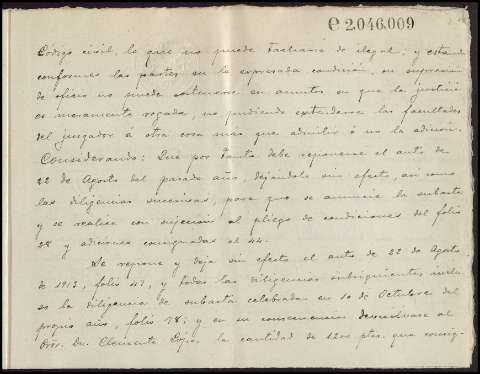 C 2.046.009
Código civil, lo que no puede tacharse de ilegal; y estando
conformes las partes en la expresada condición, su supresión
de oficio no puede sostenerse en asuntos en que la justicia
es meramente rogada, no pudiendo extenderse las facultades
del juzgador á otra cosa mas que admitir ó no la adición.
Considerando: Que por tanto debe reponerse el auto de
22 de Agosto del pasado año, dejándole sin efecto, así como
las diligencias sucesivas, para que se anuncie la subasta
y se realice con sujeción al pliego de condiciones del folio
28 y adiciones consignadas al 44.
Se repone y deja sin efecto el auto de 22 de Agosto
de 1913, folio 47, y todas las diligencias subsiguientes inclu-
so la diligencia de subasta celebrada en 10 de Octubre del
propio año, folio 78; y en su consecuencia devuélvase al
Dn. Clemente la cantidad de 1200 ptas. que consig-